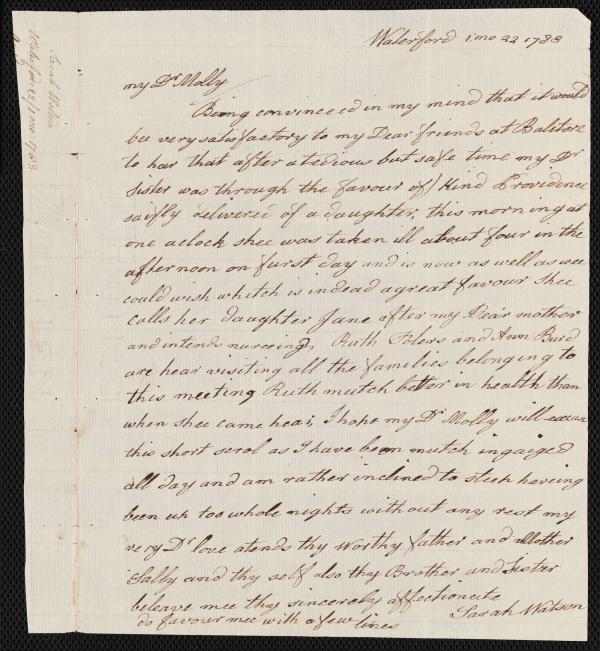 Waterford 1 mo 22 1783
my Dr Molly
Being convinceed in my mind that it would
bee very satisfactory to my Dear friends at Balitore
to har that after a tedious but safe time my Dr
Sister was through the favour of Kind Providence
saifly delivered of a daughter, this morning at
one aclock shee was taken ill about four in the
afternoon on furst day and is now as well as wee
could wish whitch is indead a great favour Shee
calls her daughter Jane after my Dear mother
and intends nurceing, Ruth Folers and Ann Burd
are hear visiting all the families belonging to
this meeting Ruth mutch better in health than
when shee came hear, I hope my Dr Molly will excuse
this short scrol as I have been mutch ingaiged
all day and am rather inclined to sleep haveing
been up too whole nights without any rest my
very Dr love atends thy Worthy father and Mother
Sally and thy self also thy Brother and Sister
beleave mee thy sincerely affectionate
Sarah Watson
do favour mee with a few lines
Sarah Watson
Waterford 22/1 mo 1783